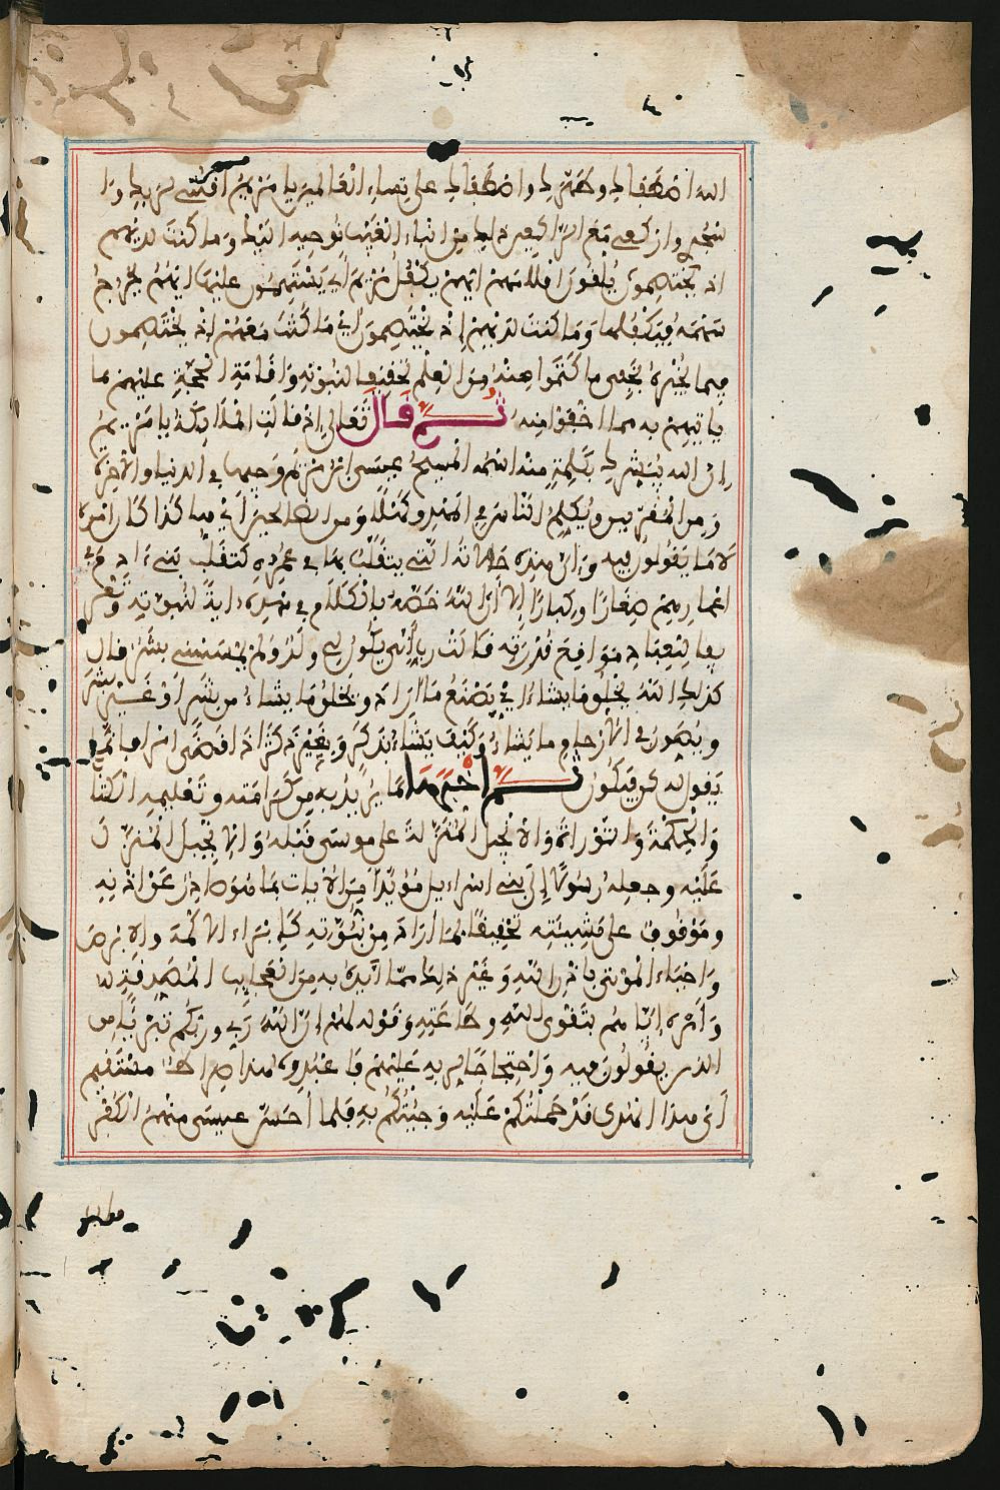 الله اصطفاك وطهرك واصطفاك على نساء العالمين يا مريم اقنتي لربك وا
سجدي واركعي مع الراكعين ذلك من انباء الغيب نوحيه اليك وما كنت لديهم
اذ يختصمون يلقون اقلامهم ايهم يكفل مريم أي يستهمون عليها ايهم يخرج
سهمه فيكفلها وما كنت لديهم إذ يختصمون أي ما كنت معهم إذ يختصمون
فيما يخبره بخفي ما كتموا عنه من العلم تحقيقا لنبوته واقامة الحجة عليهم بما
ياتيهم به مما اخفوا منه ثم قال تعالى إذ قالت الملائكة يا مريم
إن الله يبشرك بكلمة منه اسمه المسيح عيسى ابن مريم وجيها في الدنيا والاخرة
ومن المقربين ويكلم الناس في المهد وكهلا ومن الصالحين أي هكذا كان امره
لا ما يقولون فيه وإن هذه حالاته التي يتقلب بها في عمره كتقلب بني ءادم في
اعمارهم صغارا وكبارا إلا أن الله خصه بالكلام في مهده ءاية لنبوته وتعر
يفا للعباد مواقع قدرته قالت رب أنى يكون لي ولد ولم يمسسني بشر قال
كذلك الله يخلق ما يشاء أي يصنع ما اراد ويخلق ما يشاء من بشر أو غير بشر
ويصور في الارحام ما يشاء وكيف يشاء بذكر وبغير ذكر اذا قضى امرا فانما
يقول له كن فيكون ثم اخبرها بما يريد به من كرامته وتعليمه الكتا
والحكمة والتوراة والانجيل المنزلة على موسى قبله والانجيل المنزل
عليه وجعله رسولا إلى بني اسراءيل مؤيدا من الايات بما هو صادر عن اذنه
وموقوف على مشيئته تحقيقا لما أراد من نبوته كإبراء الاكمه والابرص
واحياء الموتى باذن الله وغير ذلك مما أيده به من العجايب المصدقة له
وأمره إياهم بتقوى الله وطاعته وقوله لهم إن الله ربي وربكم تبريا من
الذي يقولون فيه واحتجاجا لربه عليهم فاعبدوه هذا صراط مستقيم
أي هذا الهدى قد حملتكم عليه وجئتكم به فلما أحس عيسى منهم الكفر